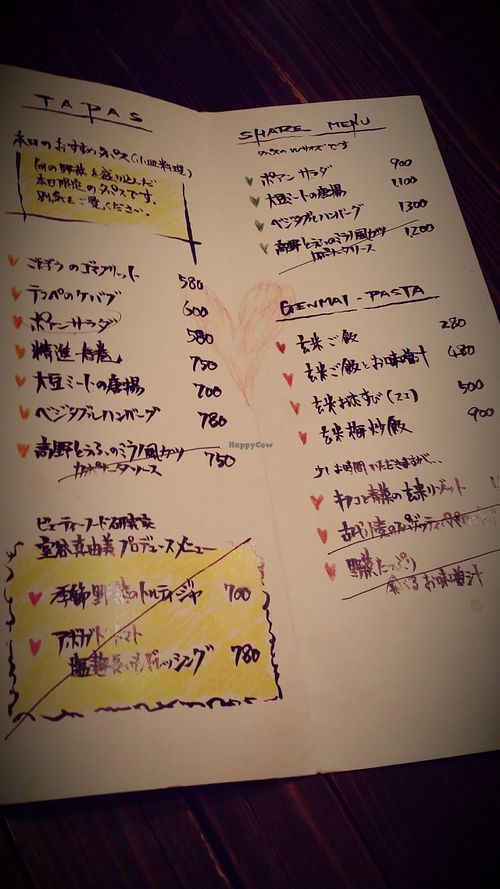 TAPAS
本日のおすすめタパス(小皿料理)
旬の野菜を盛り込んだ
本日限定のタパスです。
別紙をご覧ください。
ごぼうのゴマフリット 580
テンペのケバブ 600
ポアンサラダ 580
精進春巻 750
大豆ミートの唐揚 700
ベジタブルハンバーグ 780
高野とうふのミラノ風カツ
カポナータソース 750
ビューティーフード研究家
室谷真由美プロデュースメニュー
季節野菜のトルティージャ 700
アボカドトマト
塩麹ドレッシング 780
SHARE MENU
タパスのWサイズです
ポアンサラダ 900
大豆ミートの唐揚 1100
ベジタブルハンバーグ 1300
高野とうふのミラノ風カツ 1200
カポナータソース
GENMAI - PASTA
玄米ご飯 280
玄米ご飯とお味噌汁 480
玄米おむすび(2コ) 500
玄米梅炒飯 900
少しお時間いただきますが…
キノコと青菜の玄米リゾット
古代小麦のスパゲッティ
野菜たっぷり
食べるお味噌汁
HappyCow